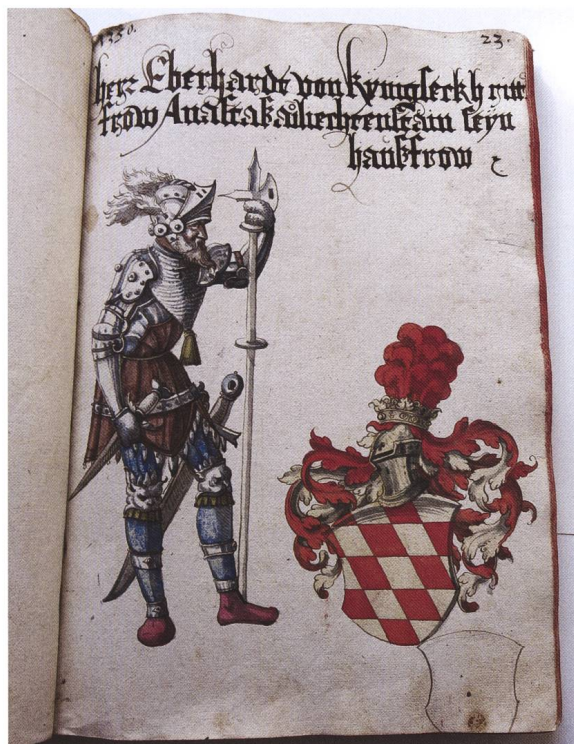 1350.
23.
herz Eberhardt von kynigseckh ritt
frow Anastasia
hausfrow